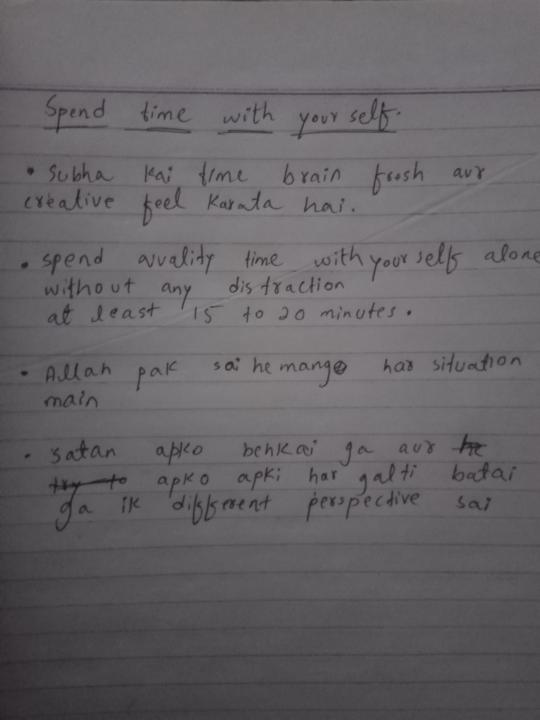 Spend time with your self.
• Subha kai time brain fresh aur
creative feel karata hai.
• spend quality time with your self alone
without any distraction
at least 15 to 20 minutes.
• Allah pak sai he mango har situation
main
• satan apko behkai ga aur he
try to apko apki har galti batai
ga ik different perspective sai